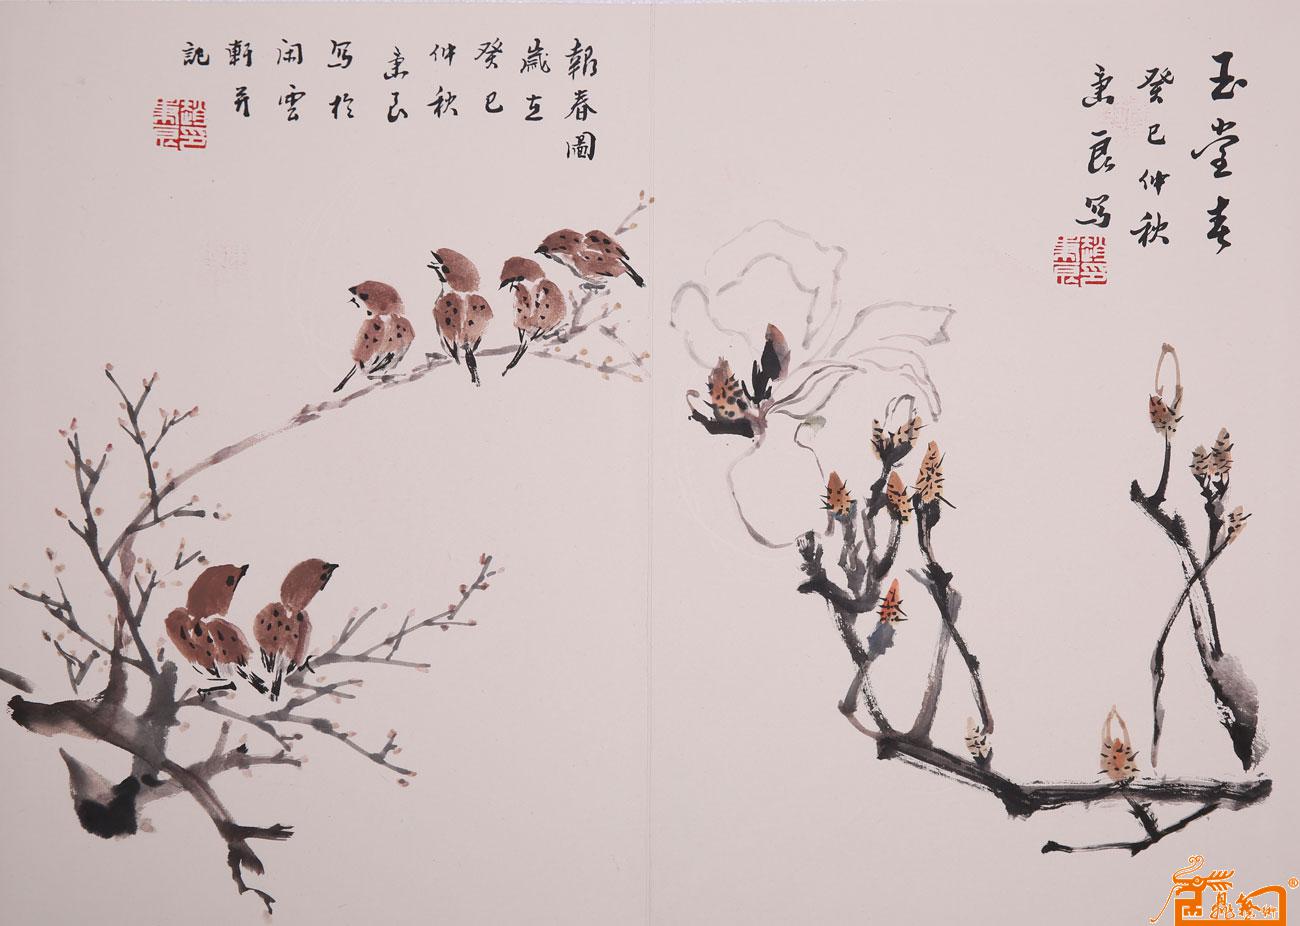 玉堂春
癸巳仲秋
秉良写
報春圖
歲在
癸巳
仲秋
秉良
写於
闲雲
軒并
記